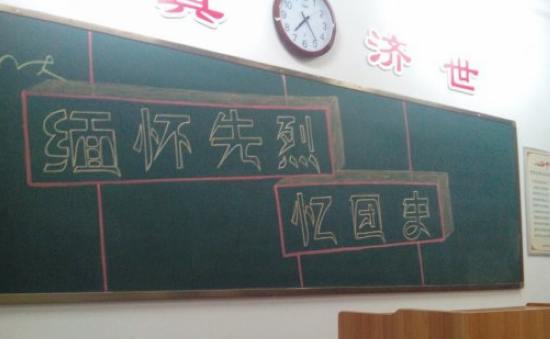 真 济 世
缅怀先烈
忆团史